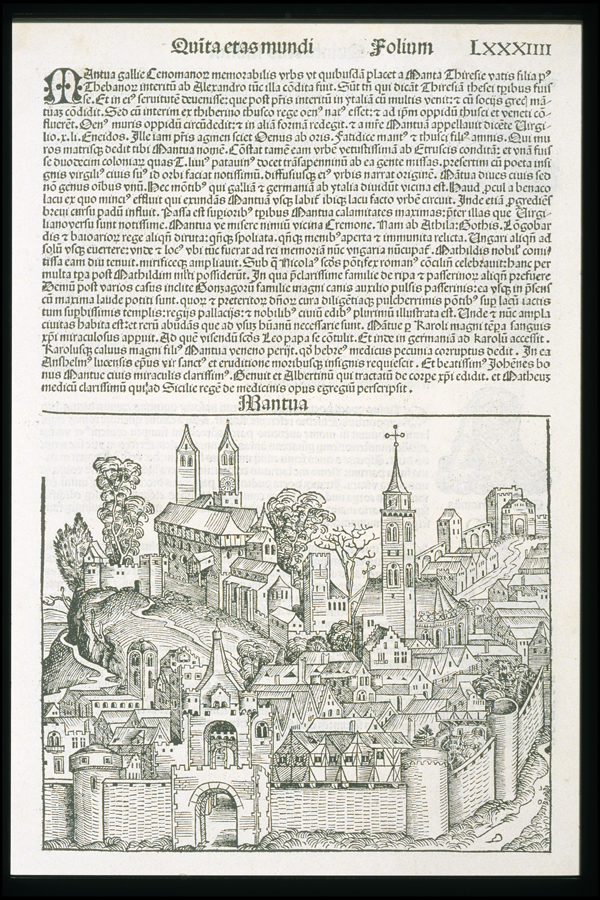 Quīta etas mundi Folium LXXXIIII
MAntua gallie Cenomanoꝝ memorabilis vrbs vt quibusdā placet a Manta Thiresie vatis filia pꝰ
Thebanoꝝ interitū ab Alexandro tūc illa cōdita fuit. Sūt tn̄ qui dicāt Thiresiā thesei tꝑibus fuis
se. Et in eiꝰ seruitutē deuenisse: que post pr̄is interitū in ytaliā cū multis venit: ⁊ cū socijs grecꝭ mā
tuaꝫ cōdidit. Sed cū interim ex thiberino thusco rege ocnꝰ natꝰ esset: ⁊ ad ip̄m oppidū thusci et veneti cō
fluerēt. Ocnꝰ muris oppidū circūdedit: ⁊ in aliā formā redegit. ⁊ a mr̄e Mantuā appellauit dicēte Virgi
lio.x.li. Eneidos. Ille iam pr̄is agmen sciet Ocnus ab oris. Fatidice mantꝰ ⁊ thusci filiꝰ amnis. Qui mu
ros matrisqꝫ dedit tibi Mantua nomē. Cōstat tamē eam vrbē vetustissimā ab Etruscis conditā: et vnā fuis
se duodecim coloniaꝝ quas T. liuiꝰ patauinꝰ docet trāsapenninū ab ea gente missas. presertim cū poeta insi
gnis virgiliꝰ ciuis suꝰ id orbi faciat notissimū. diffususqꝫ eiꝰ vrbis narrat originē. Mātua diues ciuis sed
nō genus oībus vnū. Hec mōtibꝰ qui galliā ⁊ germaniā ab ytalia diuidūt vicina est. Haud ꝓcul a benaco
lacu ex quo minciꝰ effluit qui exundās Mantuā vsqꝫ labit̄ ibiqꝫ lacu facto vrbē circuit. Inde etiā ꝓgrediēs
breui cursu padū influit. Passa est suꝑioribꝰ tꝑibus Mantua calamitates maximas: p̄ter illas que Virgi-
liano versu sunt notissime. Mantua ve misere nimiū vicina Cremone. Nam ab Athila: Gothis. Lōgobar
dis ⁊ baioarioꝝ rege aliqn̄ diruta: qn̄qꝫ spoliata. qn̄qꝫ menibꝰ aperta ⁊ immunita relicta. Ungari aliqn̄ ad
solū vsqꝫ euertere: vnde ⁊ locꝰ vbi tūc fuerāt ad rei memoriā nūc vngaria nūcupat̄. Mathildis nobilꝭ comi
tissa eam diu tenuit. mirificeqꝫ ampliauit. Sub q̄ Nicolaꝰ scd̄s pōtifex romanꝰ cōciliū celebrauit: hanc per
multa tꝑa post Mathildim nr̄i possiderūt. In qua p̄clarissime familie de ripa ⁊ passerinoꝝ aliqn̄ prefuere
Demū post varios casus inclite Gonzagoꝝ familie magni canis auxilio pulsis passerinis: ea vsqꝫ in p̄sens
cū maxima laude potiti sunt. quoꝝ ⁊ preteritoꝝ dn̄oꝝ cura diligētiaqꝫ pulcherrimis pōtibꝰ sup lacū iactis
tum suphissimis templis: regijs pallacijs: ⁊ nobiliū ciuiū edibꝰ plurimū illustrata est. Unde ⁊ nūc ampla
ciuitas habita est: et rerū abūdans que ad vsus hūanū necessarie sunt. Mātue ꝑ Karoli magni tēpa sanguis
xp̄i miraculosus apꝑuit. Ad quē visendū scd̄s Leo papa se cōtulit. Et inde in germaniā ad karolū accessit.
Karolusqꝫ caluus magni filiꝰ Mantue veneno perijt. qd̄ hebreꝰ medicus pecunia corruptus dedit. In ea
Anshelmꝰ lucensis ep̄us vir sanctꝰ et eruditione moribusqꝫ insignis requiescit. Et beatissimꝰ Johēnes bo
nus Mantue ciuis miraculis clarissimꝰ. Genuit et Albertinū qui tractatū de corpe xp̄i edidit. et Matheuꝫ
medicū clarissimū qui ad Sicilie regē de medicinis opus egregiū perscripsit.
Mantua